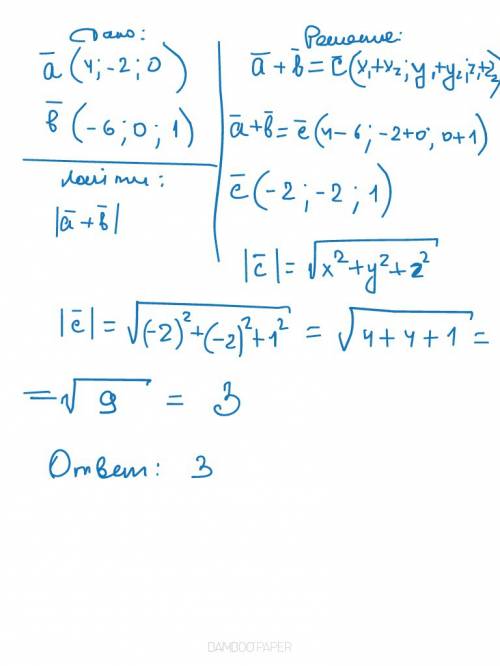 Дано:
ā (4; -2; 0)
b̄ (-6; 0; 1)
Найти:
|ā + b̄|
Решение:
ā + b̄ = c̄ (x₁+x₂; y₁+y₂; z₁+z₂)
ā + b̄ = c̄ (4-6; -2+0; 0+1)
c̄ (-2; -2; 1)
|c̄| = √x²+y²+z²
|c̄| = √(-2)²+(-2)²+1² = √4+4+1 =
= √9 = 3
Ответ: 3
BAMBOOPAPER